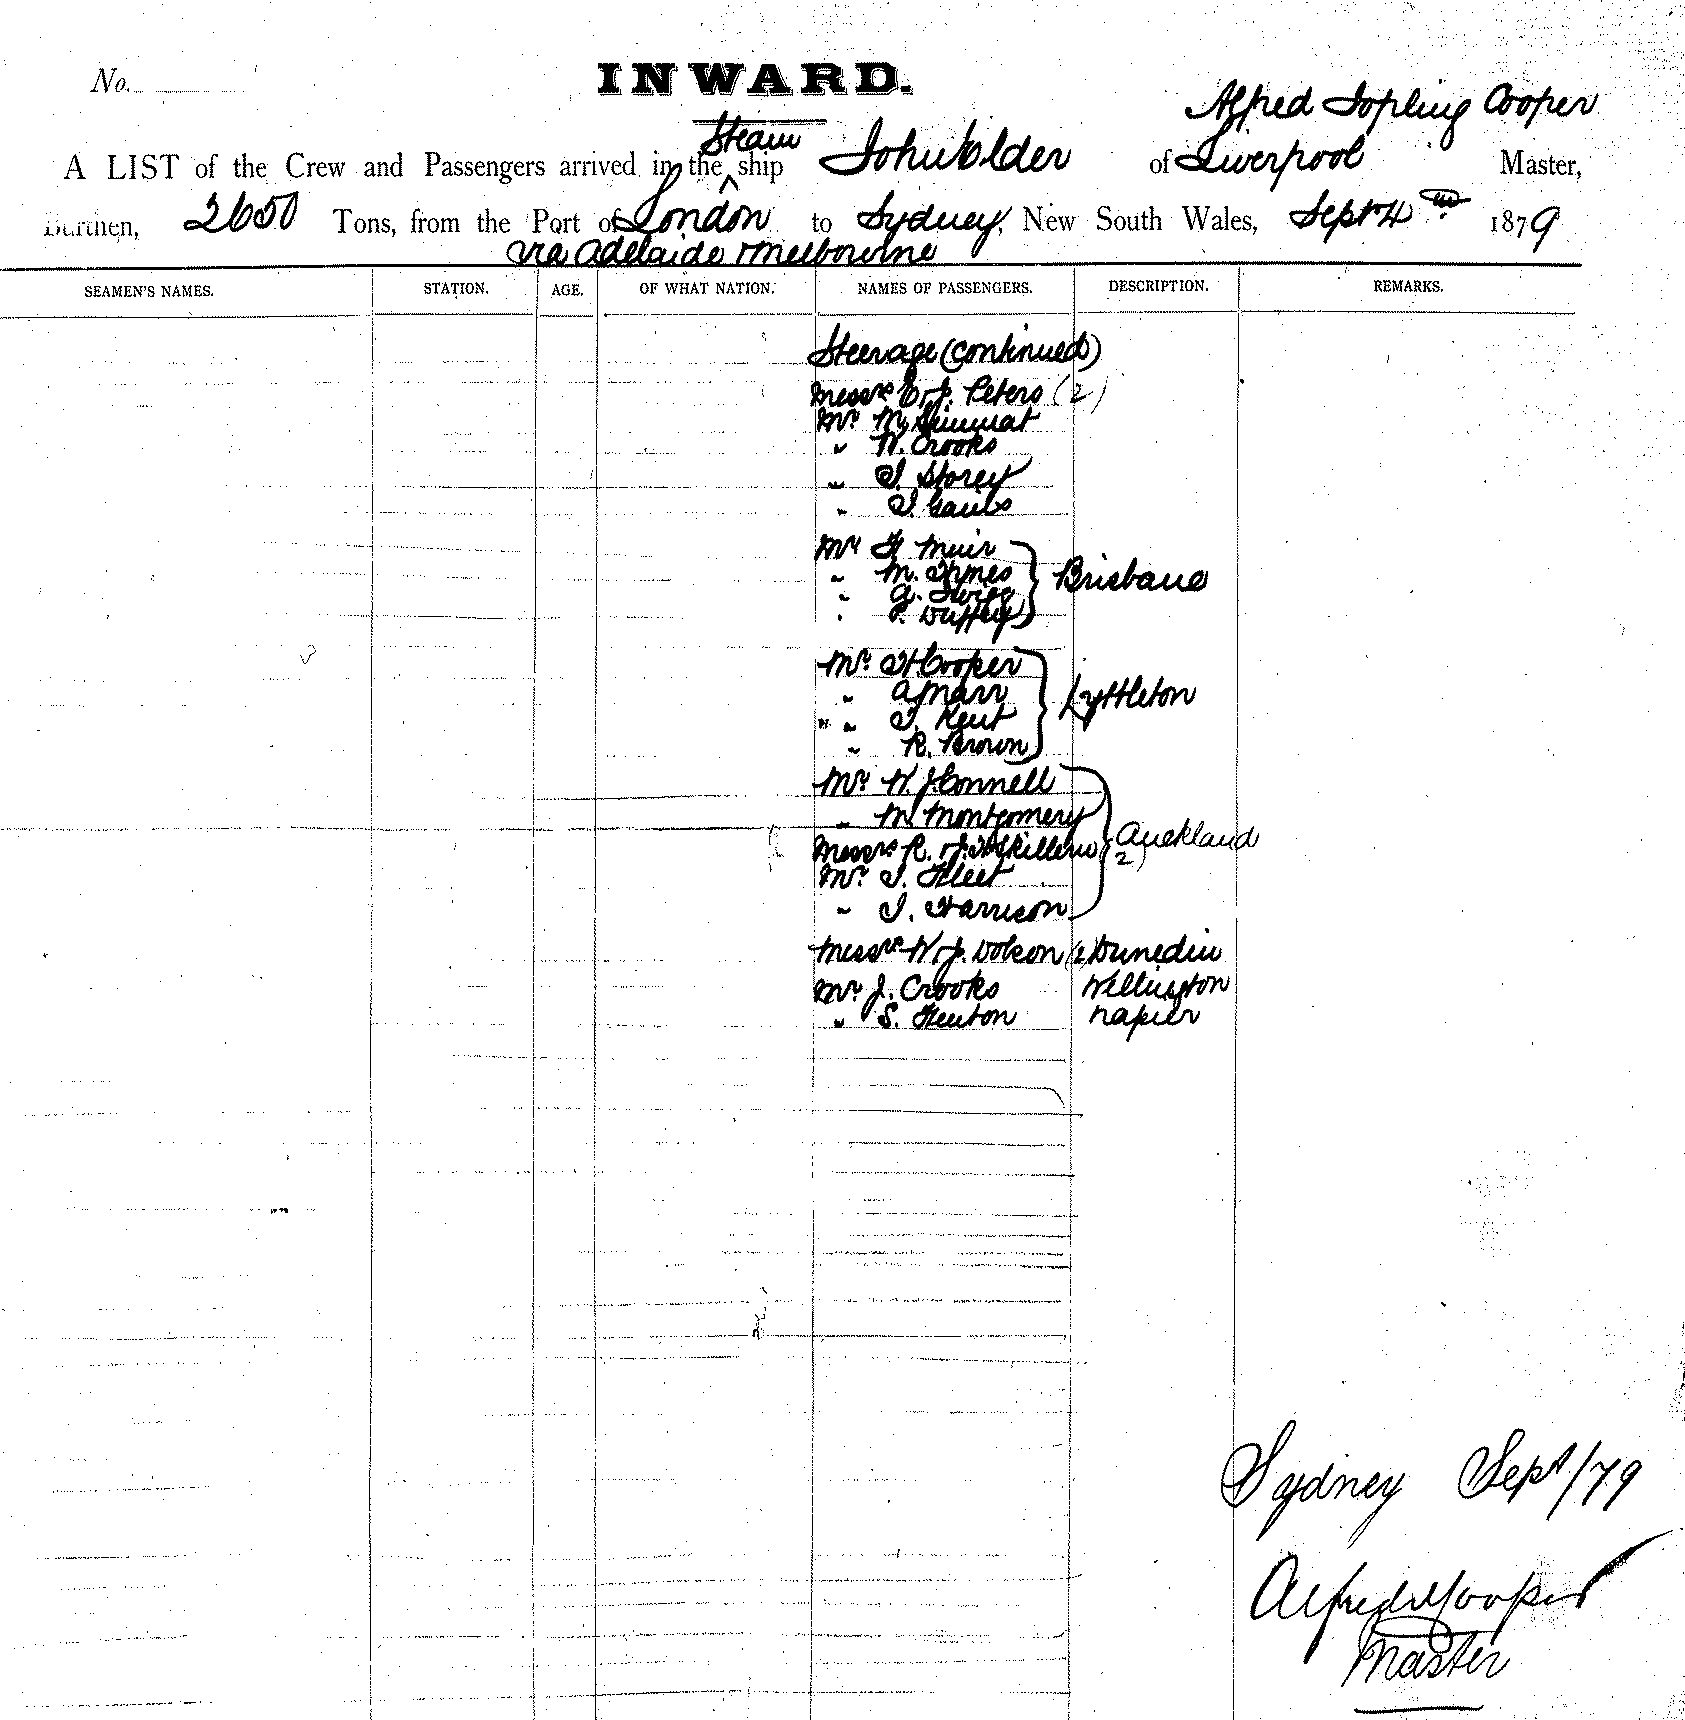 No.
INWARD.
Alfred Topling Cooper
Steam
A LIST of the Crew and Passengers arrived in the ^ ship John Elder of Liverpool Master,
Burthen, 2650 Tons, from the Port of London to Sydney, New South Wales, Sept 4 1879
via Adelaide & Melbourne
SEAMEN'S NAMES. STATION. AGE. OF WHAT NATION. NAMES OF PASSENGERS. DESCRIPTION. REMARKS.
Steerage (continued)
Messrs E & J. Peters (2)
Mr M.
" W. Crooks
" J. Storey
" J.
Mr F Muir
" M. Hynes
" G. Twigg
" P. Duffey
Brisbane
Mr T H Cooper
" A Marr
" J. Kent
" R. Brown
Lyttleton
Mr W. J Connell
" M Montgomery
Messrs R. & J. Skillen 2)
Mr J. Fleet
" J. Harrison
Auckland
Messrs W & J. Dobson (2) Dunedin
Mr J. Crooks Wellington
" S. Fenton Napier
Sydney Sept/79
Alfred T Cooper
Master